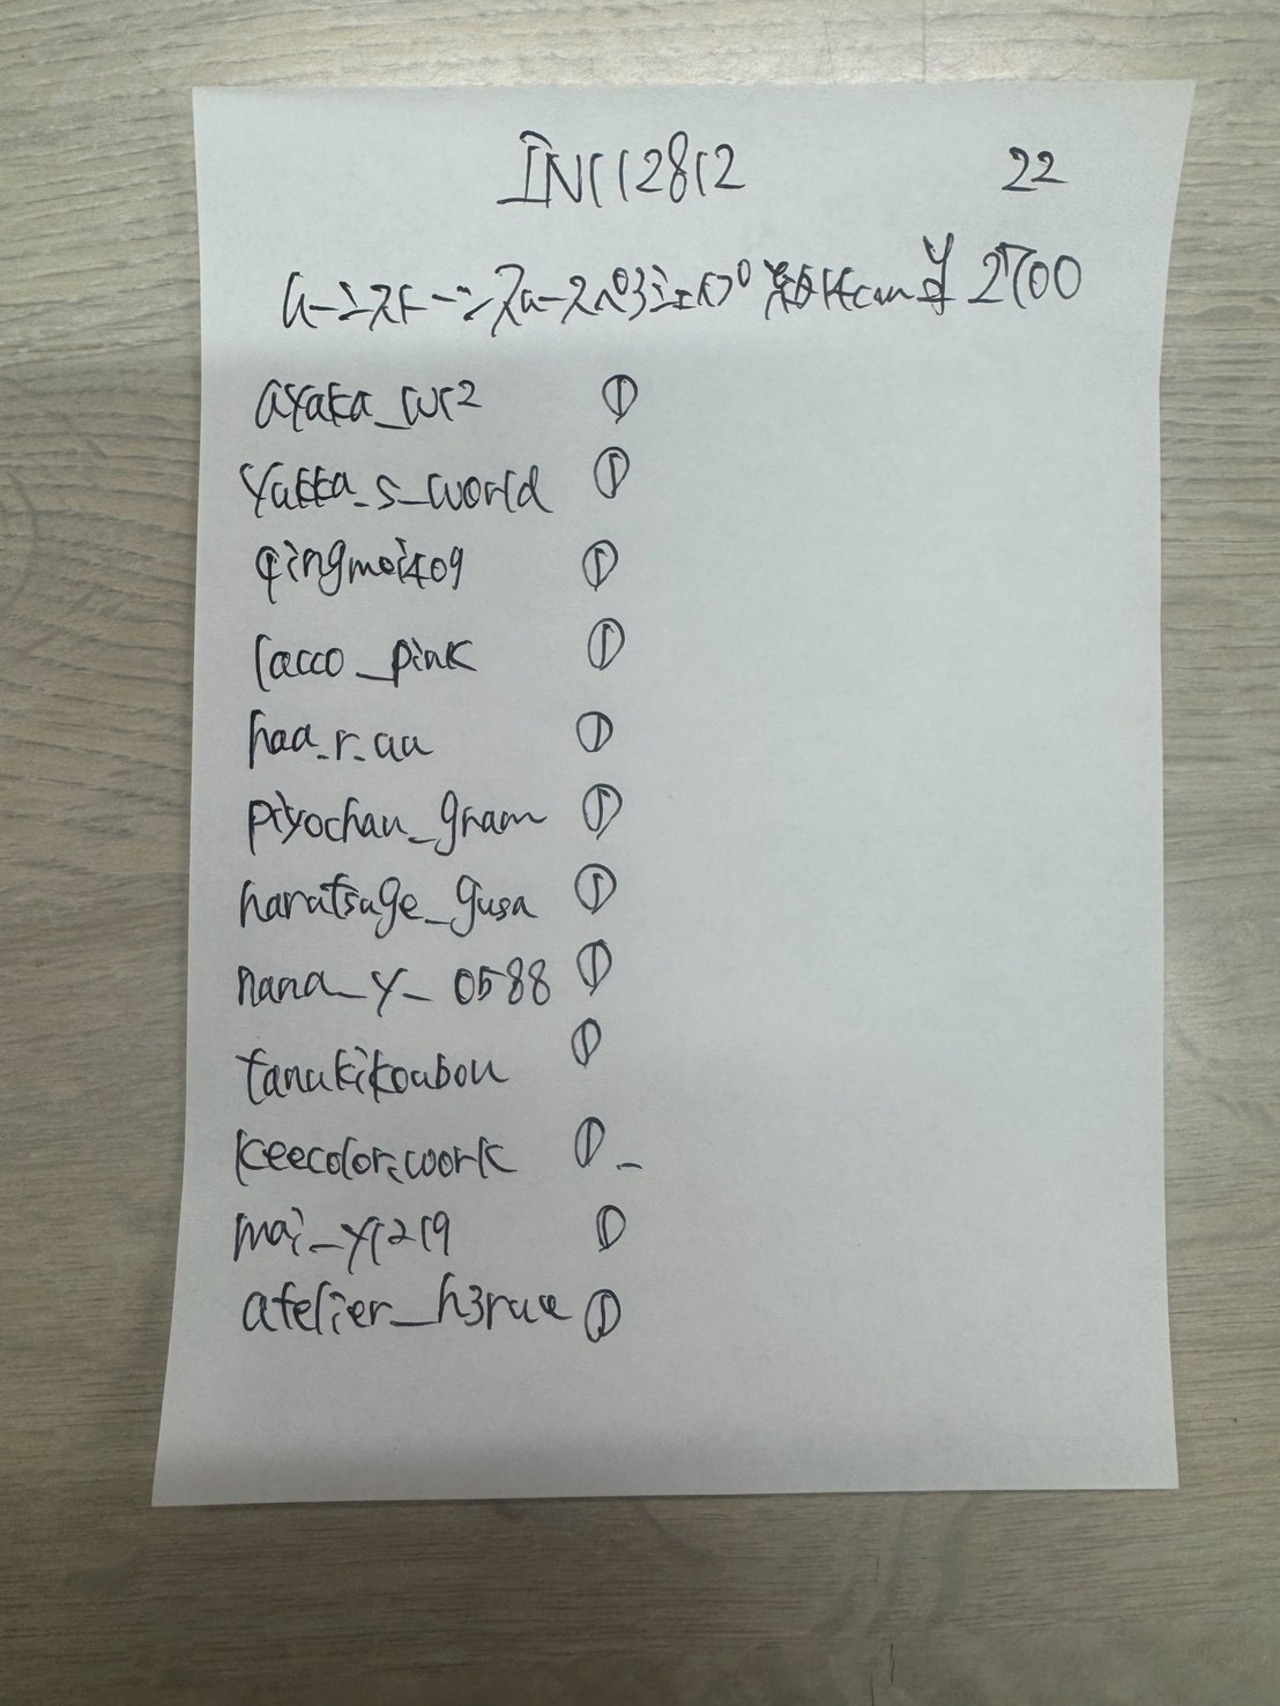 INC12812 22
ムーンストーンスムースペアシェイプ 約14cm ¥2700
ayaka_wr2 ①
yakka_s_world ①
qingmei409 ①
lacco_pink ①
haa_r_aa ①
piyochan_gram ①
haratsuge_gusa ①
nana_y_0588 ①
tanukikoubou ①
keecolor.work ①
mai_y1219 ①
atelier_h3rue ①